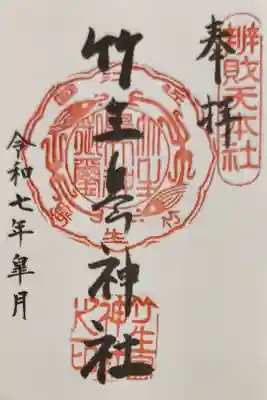 奉拝
辨財天本社
竹生島神社
竹生島神社之印
令和七年皐月